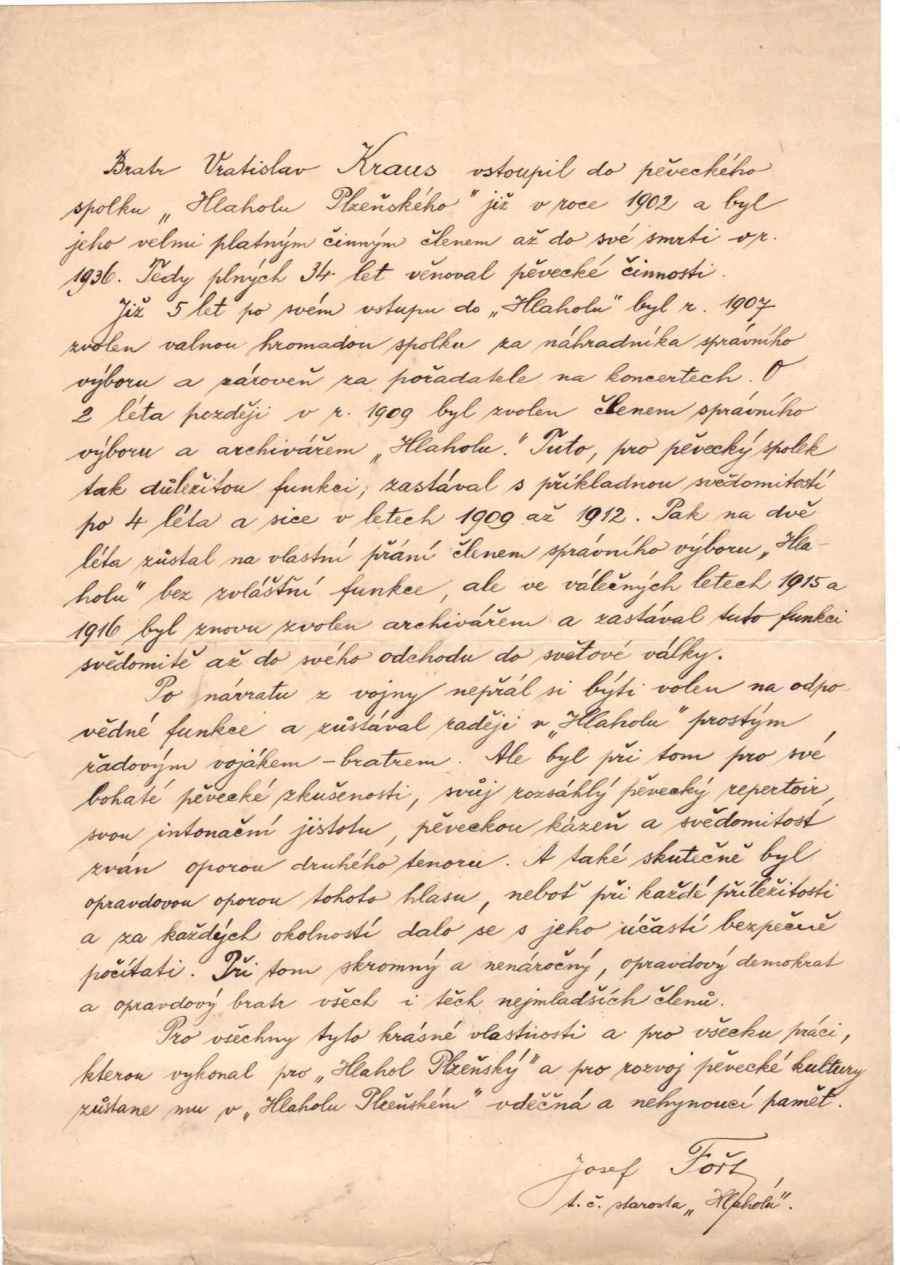 Bratr Vratislav Kraus vstoupil do pěveckého
spolku „Hlaholu Plzeňského" již v roce 1902 a byl
jeho velmi platným činným členem až do své smrti v r.
1936. Tedy plných 34 let věnoval pěvecké činnosti.
Již 5 let po svém vstupu do „Hlaholu" byl r. 1907
zvolen valnou hromadou spolku za náhradníka správního
výboru a zároveň za pořadatele na koncertech. O
2 léta později v r. 1909 byl zvolen členem správního
výboru a archivářem „Hlaholu". Tuto, pro pěvecký spolek
tak důležitou funkci, zastával s příkladnou svědomitostí
po 4 léta a sice v letech 1909 až 1912. Pak na dvě
léta zůstal na vlastní přání členem správního výboru „Hla-
holu" bez zvláštní funkce, ale ve válečných letech 1915 a
1916 byl znovu zvolen archivářem a zastával tuto funkci
svědomitě až do svého odchodu do světové války.
Po návratu z vojny nepřál si býti volen na odpo-
vědné funkce a zůstával raději v „Hlaholu" prostým
řadovým vojákem - bratrem. Ale byl při tom pro své
bohaté pěvecké zkušenosti, svůj rozsáhlý pěvecký repertoir,
svou intonační jistotu, pěveckou kázeň a svědomitost
zván oporou druhého tenoru. A také skutečně byl
opravdovou oporou tohoto hlasu, neboť při každé příležitosti
a za každých okolností dalo se s jeho účastí bezpečně
počítati. Při tom skromný a nenáročný, opravdový demokrat
a opravdový bratr všech i těch nejmladších členů.
Pro všechny tyto krásné vlastnosti a pro všecku práci,
kterou vykonal pro „Hlahol Plzeňský" a pro rozvoj pěvecké kultury
zůstane mu v „Hlaholu Plzeňském" vděčná a nehynoucí paměť.
Josef Fořt
t. č. starosta „Hlaholu".